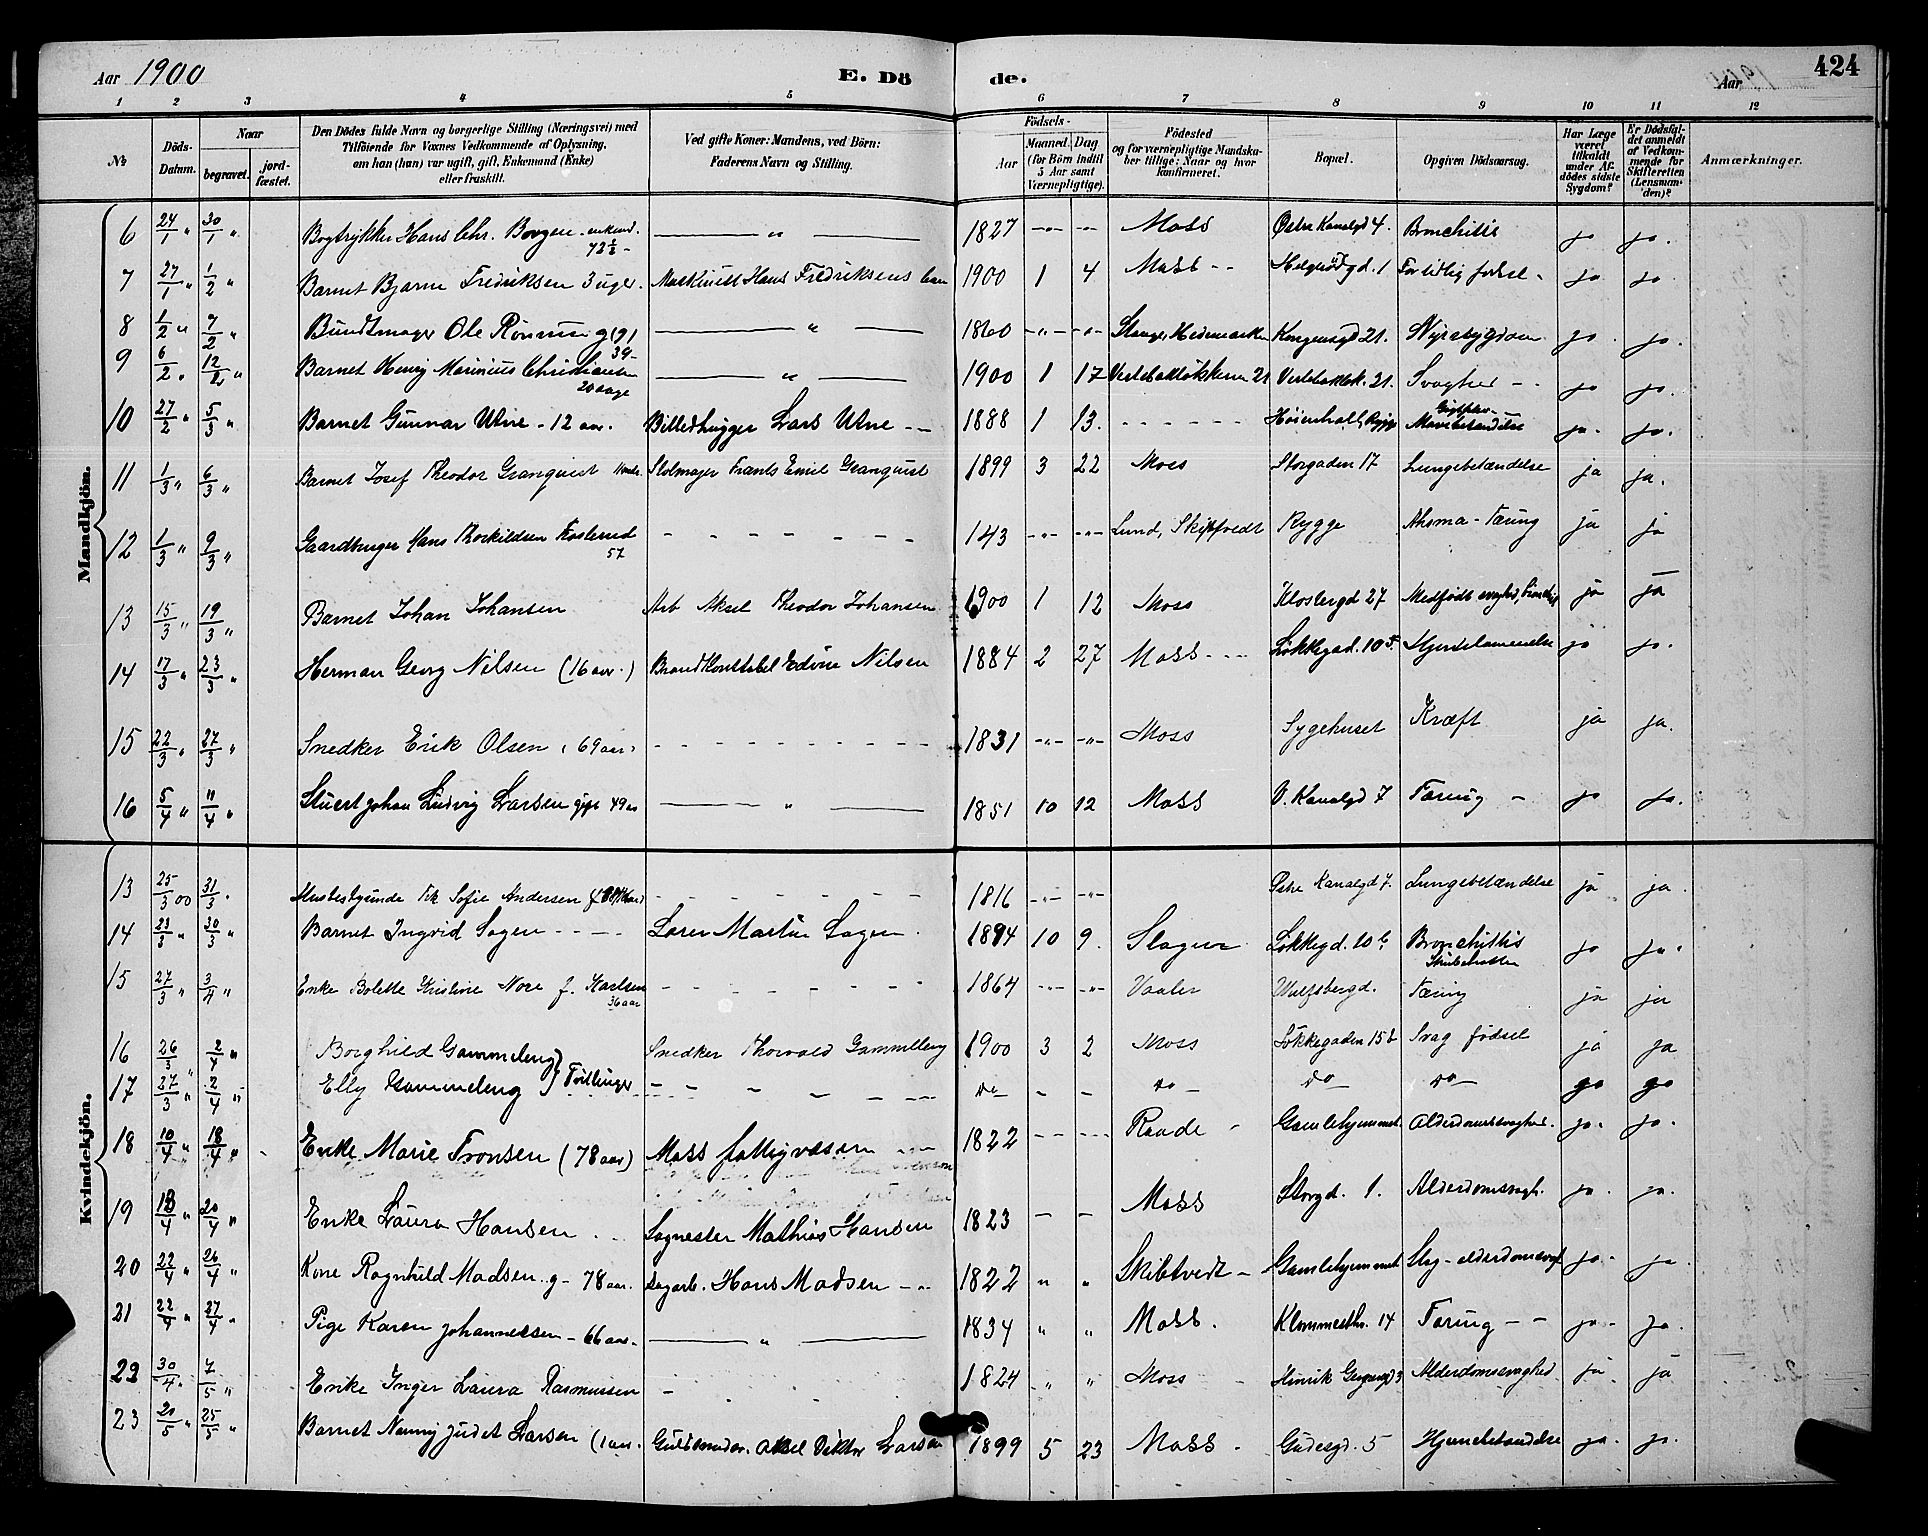 Aar 1900 E. Dö
de. Aar 424
1 2 3 4 5 6 7 8 9 10 11 12
№
Döds-Datum.
Naar
begravet.
jord-fæstet.
Den Dödes fulde Navn og borgerlige Stilling (Næringsvei) med
Tilföiende for Voxnes Vedkommende af Oplysning,
om han (hun) var ugift, gift, Enkemand (Enke)
eller fraskilt.
Ved gifte Koner: Mandens, ved Börn:
Faderens Navn og Stilling.
Födsels-
Aar
Maaned. Dag
(for Börn indtil
5 Aar samt
Værnepligtige).
Födested
og for værnepligtige Mandska-
ber tillige: Naar og hvor
konfirmeret.
Bopæl.
Opgiven Dödsaarsag.
Har Læge
været
tilkaldt
under Af-
dödes sidste
Sygdom?
Er Dödsfal-
det anmeldt
af Vedkom-
mende for
Skifteretten
(Lensman-
den)?
Anmærkninger.
Mandkjön.
6 24/1 " 30/1 " Bogtrykker Hans Chr. Borgen - enkem. 72½ - — " — 1827 -"- -"- Moss Østre Kanalgd 4. Bronchitis ja ja.
7 27/1 " 1/2 " Barnet Bjarne Fredriksen 3 uger. Maskinist Hans Fredriksens barn 1900 1 4 Moss -- Helgerödgd. 1 For tidlig fødsel - ja ja
8 1/2 " 7/2 " Bundtmager Ole Rönning (g) 39- — " — 1860 -"- -"- Stange, Hedemarken Kongensgd 21. Nyresygdom ja. ja.
9 6/2 " 12/2 " Barnet Henry Marinius Christiansen 20 dage — " — 1900 1 17 21 21. Svaghed -- ja ja.
10 27/2 " 5/3 " Barnet Gunnar Utne - 12 aar. Billedhugger Lars Utne -- 1888 1 13. - - - - - Høienhald, Rygge Mavebetændelse ja. ja.
11 1/3 " 6/3 " Barnet Josef Theodor Granquist Stolmager Frants Emil Granquist 1899 3 22 Moss Storgaden 17 Lungebetændelse ja ja.
12 1/3 " 9/3 " Gaardbruger Hans Thorkildsen 57 - - - - - - 143 -"- -"- Lund, Skiptvedt Rygge Athsma - Tæring ja ja
13 15/3 " 19/3 " Barnet Johan Johansen Arb Aksel Theodor Johansen 1900 1 12 Moss Klostergd 27 Medfødt svaghed, ja ja
14 17/3 " 23/3 " Herman Georg Nilsen (16 aar.) Brandkonstabel Edvin Nilsen 1884 2 27 Moss -- Løkkegad. 10 Hjertelammelse ja ja.
15 22/3 " 27/3 " Snedker Erik Olsen (69 aar) - - - - - - 1831 -"- -"- Moss Sygehuset Kræft ja ja.
16 5/4 " 11/4 " Stuert Johan Ludvig Larsen gift 49 aar — " — 1851 10 12 Moss V. Kanalgd 7 Tæring - ja ja.
Kvindekjön.
13 25/3 00 31/3 " Frk Sofie Andersen - - - - - - 1816 -"- -"- Østre Kanalgd 7. Lungebetændelse ja ja.
14 23/3 " 30/3 " Barnet Ingrid Sagen - - - - Martin Sagen. 1894 10 9. Slagen Løkkegd. 10 Bronchittis ja ja.
15 27/3 " 3/4 " Enke Bolette Kristine Nore f. Karlsen 36 aar - - - - - - 1864 -"- -"- Vaaler Wulfsbergd. Tæring ja ja
16 26/3 " 2/4 " Borghild Gammeleng } Snedker Thorvald Gammeleng 1900 3 2 Moss Løkkegaden 15 b Svag fødsel ja ja
17 27/3 " 2/4 " Elly Gammeleng } Tvillinger - - - - - - do - - do - do - do - ja ja
18 10/4 " 18/4 " Enke Marie Tronsen (78 aar) Moss fattigvæsen 1822 -- --- Raade - Gamlehjemmet Alderdomssvaghed. ja. ja.
19 13/4 " 20/4 " Enke Laura Hansen .. Mathias Hansen 1823 - - Moss Storgd. 1. Alderdomssvagh. ja. ja.
20 22/4 " 26/4 " Kone Ragnhild Madsen g- 78 aar. Dagarb. Hans Madsen -- 1822 " " Skibtvedt - Gamlehjemmet Slag - alderdomssvagh ja. ja.
21 22/4 " 27/4 " Pige Karen Johannessen - 66 aar. — " — 1834 " " Moss. 14 Tæring -- ja. ja.
22 30/4 " 7/5 " Enke Inger Laura Rasmussen - 1824 " " Moss - Henrik Gernersgd 3 Alderdomssvaghed ja. ja
23 20/5 " 25/5 " Barnet Nanny Judet Larsen (1 aar. Aksel Viktor Larsen 1899 5 23 Moss - Gudesgd. 5 Hjernebetændelse ja. ja.